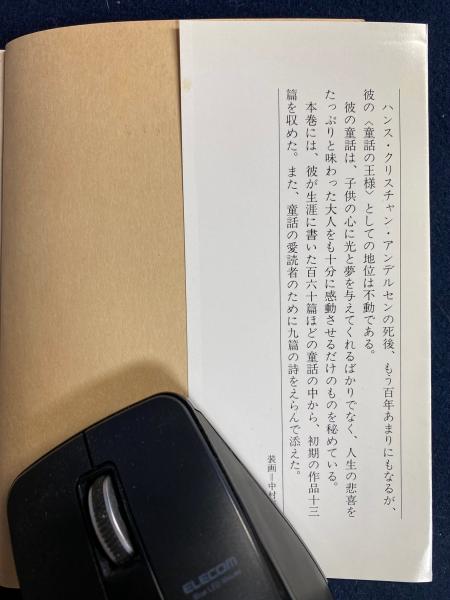 ハンス・クリスチャン・アンデルセンの死後、もう百年あまりにもなるが、
彼の〈童話の王様〉としての地位は不動である。
彼の童話は、子供の心に光と夢を与えてくれるばかりでなく、人生の悲喜を
たっぷりと味わった大人をも十分に感動させるだけのものを秘めている。
本巻には、彼が生涯に書いた百六十篇ほどの童話の中から、初期の作品十三
篇を収めた。また、童話の愛読者のために九篇の詩をえらんで添えた。
装画=中村
ELECOM
Blue LED Mouse